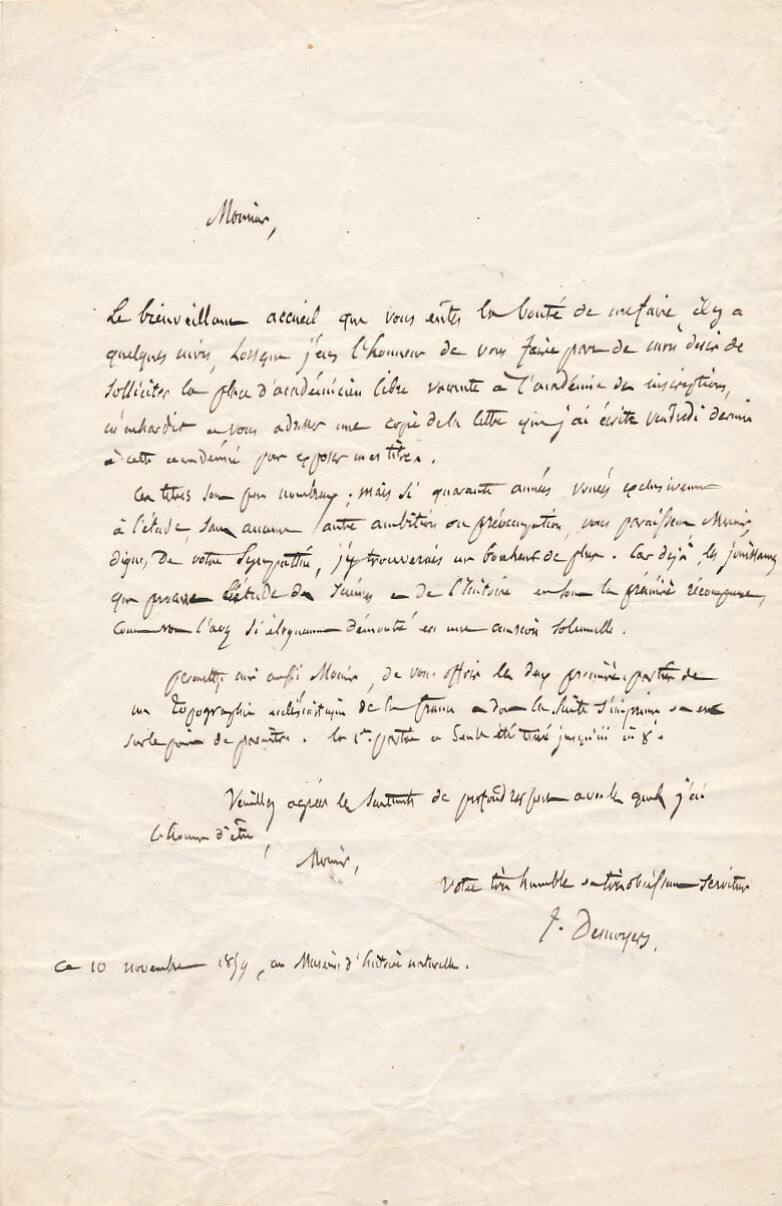 Monsieur,
Le bienveillant accueil que vous eûtes la bonté de me faire, il y a
quelques mois, lorsque j'eus l'honneur de vous faire part de mon désir de
solliciter la place d'académicien libre vacante à l'académie des inscriptions,
m'enhardit à vous adresser une copie de la lettre que j'ai écrite vendredi dernier
à cette académie pour exposer mes titres.
Ces titres sont peu nombreux ; mais si quarante années vouées exclusivement
à l'étude, sans aucune autre ambition ou préoccupation, vous paraissent, Monsieur,
dignes de votre sympathie, j'y trouverais un bonheur de plus. Car déjà, les jouissances
que procure l'étude des sciences et de l'histoire en sont la première récompense,
comme vous l'avez si éloquemment démontré en une occasion solennelle.
Permettez moi aussi, Monsieur, de vous offrir les deux premières parties de
ma topographie ecclésiastique de la france dont la suite s'imprime et est
sur le point de paraître. la 1re partie a seule été tirée jusqu'ici in 8°.
Veuillez agréer les sentiments de profond respect avec lesquels j'ai
l'honneur d'être,
Monsieur,
Votre très humble et très obéissant serviteur
J. Desnoyers.
Ce 10 novembre 1859, au Muséum d'histoire naturelle.